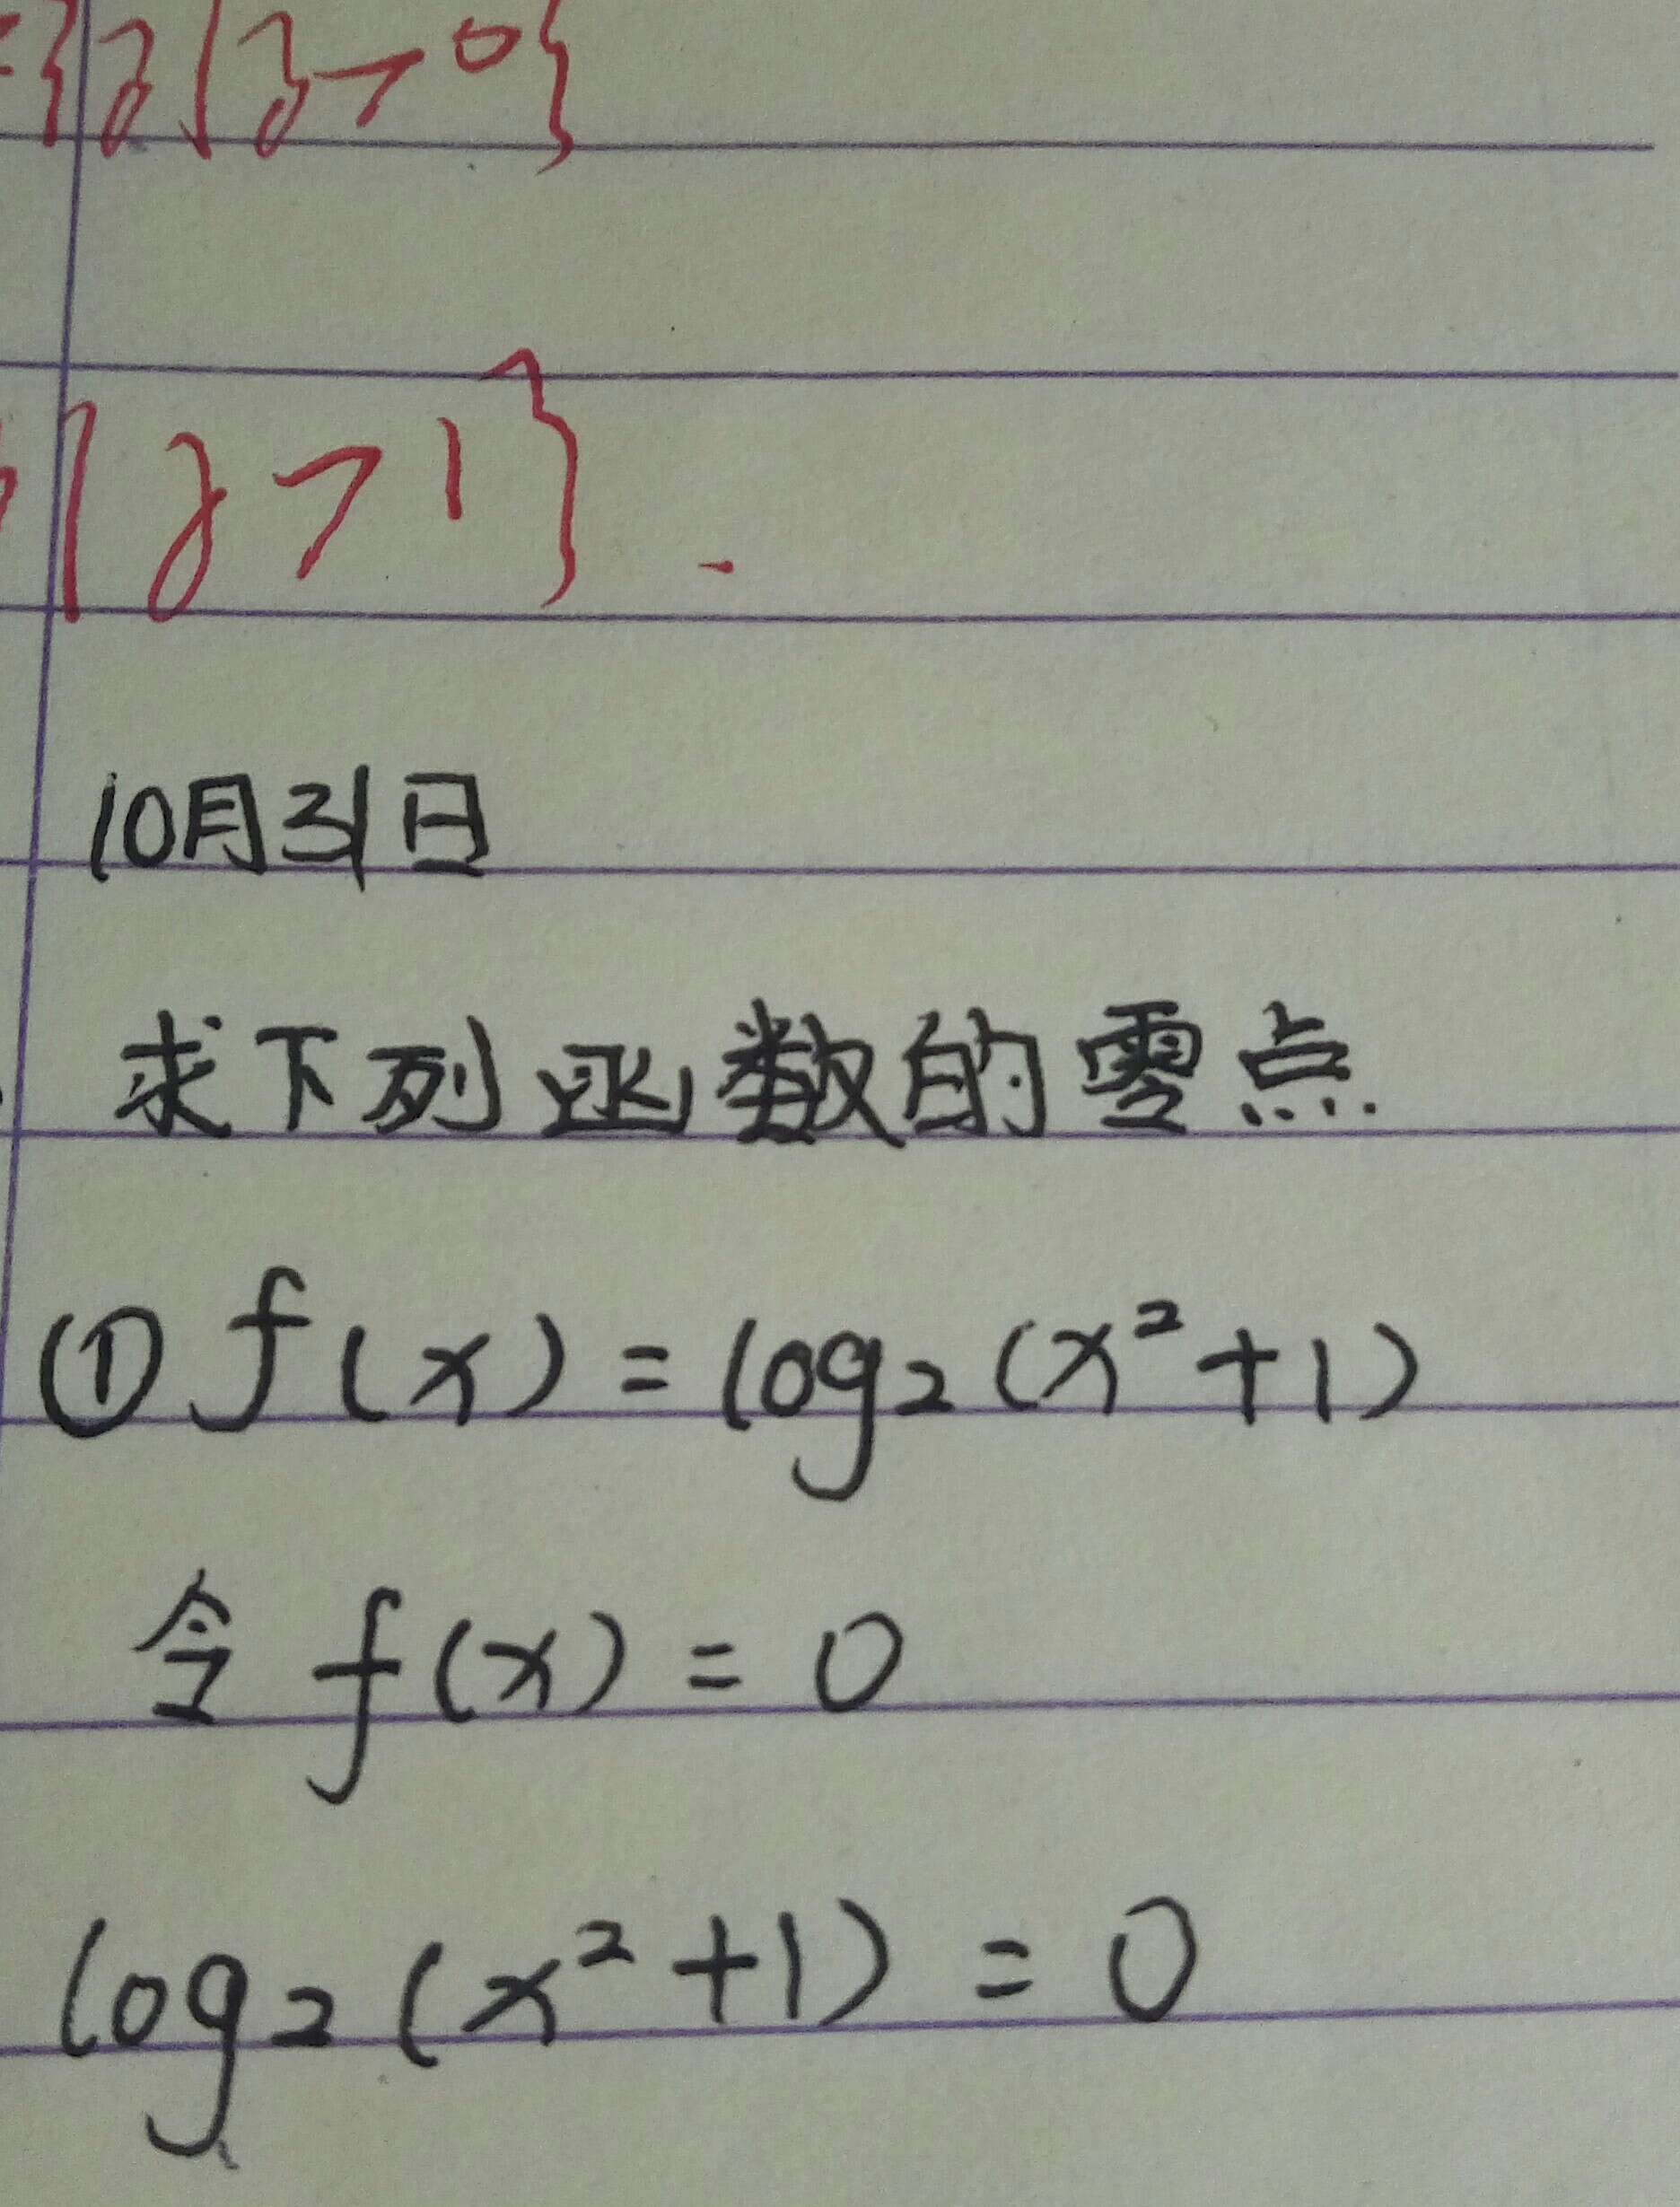 ={y|y>0}
|y>1}.
10月31日
求下列函数的零点.
① f(x)=log₂(x²+1)
令 f(x)=0
log₂(x²+1)=0